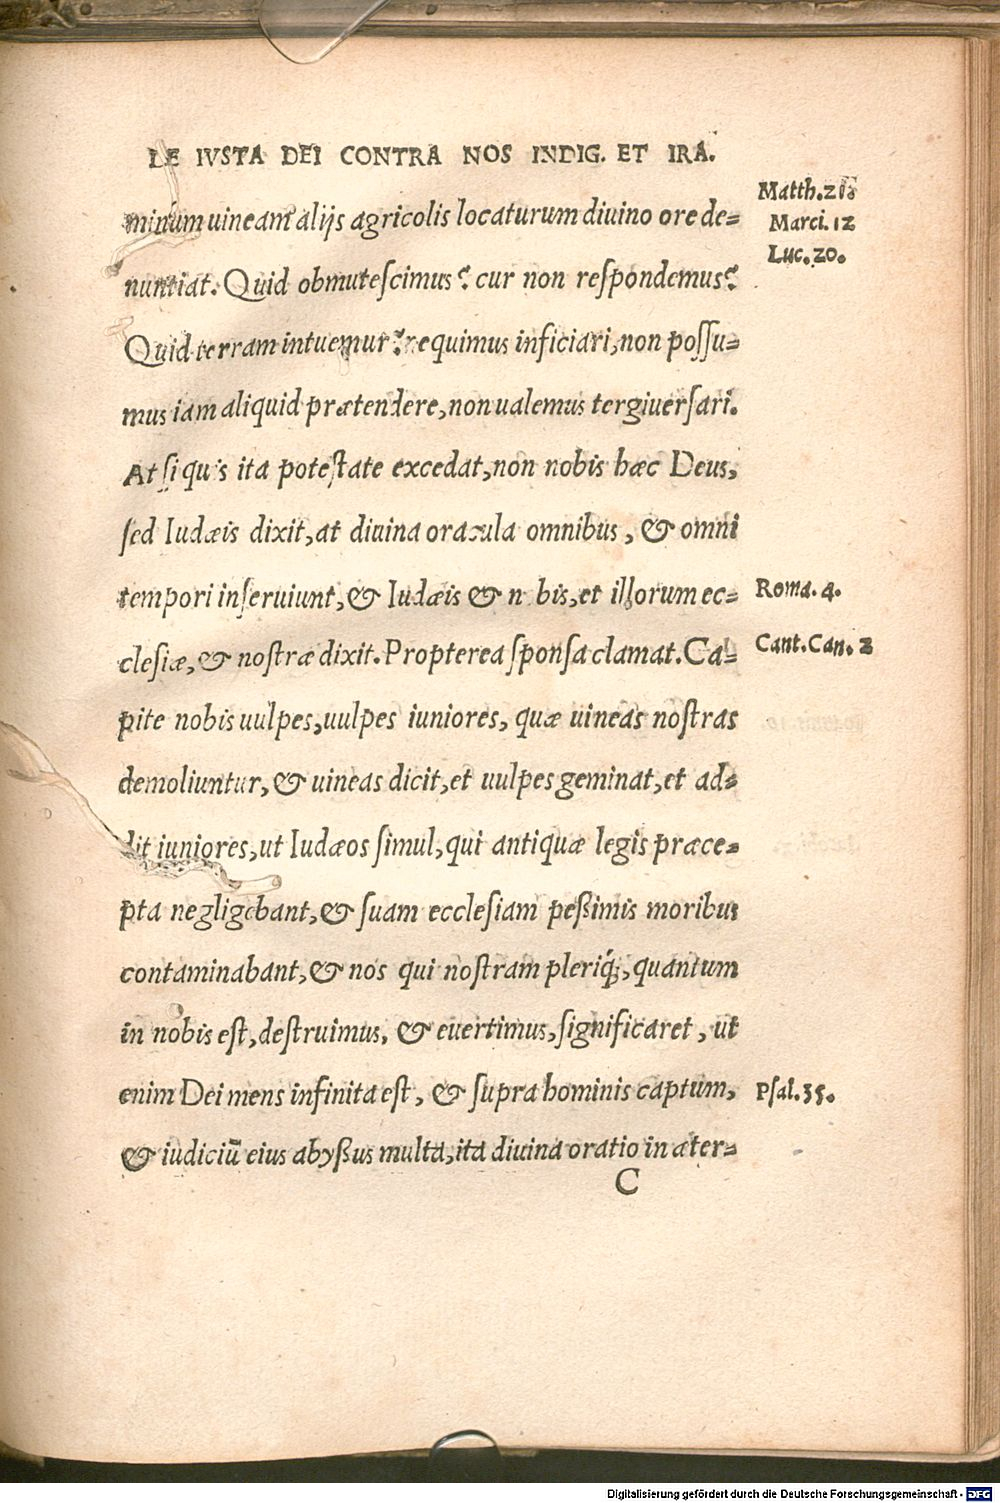 DE IVSTA DEI CONTRA NOS INDIG. ET IRA.
minum uineam alijs agricolis locaturum diuino ore de-
nuntiat. Quid obmutescimus? cur non respondemus?
Quid terram intuemur? nequimus inficiari, non possu-
mus iam aliquid prætendere, non ualemus tergiuersari.
At si quis ita potestate excedat, non nobis hæc Deus,
sed Iudæis dixit, at diuina oracula omnibus, & omni
tempori inseruiunt, & Iudæis & nobis, et illorum ec-
clesiæ, & nostræ dixit. Propterea sponsa clamat. Ca-
pite nobis uulpes, uulpes iuniores, quæ uineas nostras
demoliuntur, & uineas dicit, et uulpes geminat, et ad-
dit iuniores, ut Iudæos simul, qui antiquæ legis præce-
pta negligebant, & suam ecclesiam peßimis moribus
contaminabant, & nos qui nostram pleriq;, quantum
in nobis est, destruimus, & euertimus, significaret, ut
enim Dei mens infinita est, & supra hominis captum,
& iudiciū eius abyßus multa, ita diuina oratio in æter-
C
Matth.21
Marci.12
Luc.20.
Roma.4.
Cant.Can.2
Psal.35.
Digitalisierung gefördert durch die Deutsche Forschungsgemeinschaft - DFG